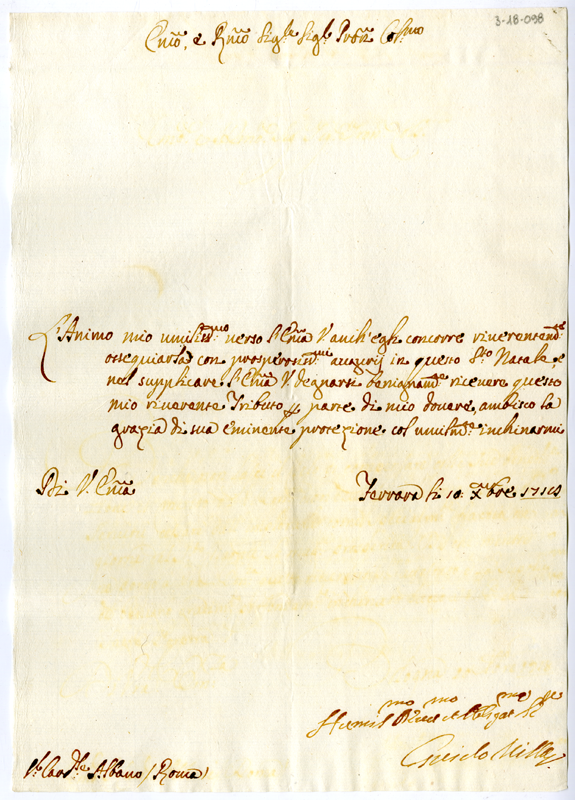 3-18-098
Em̃o, e Rm̃o Sig.re Sig.r Prõn Col.mo
L'Animo mio umiliss.mo verso l'Em̃a V. anch'egli concorre riverentem.te
ossequiarla con prosperissimi augurij in questo S.to Natale, e
nel supplicare l'Em̃a V. degnarsi benignam.te ricevere questo
mio riverente Tributo parte di mio dovere, ambisco la
grazia di sua eminente protezione, col umilm.te inchinarmi
Di V. Em̃a
Ferrara li 10 Xbre
Humil.mo
Guido Villa
S.r Card.le Albano (Roma)